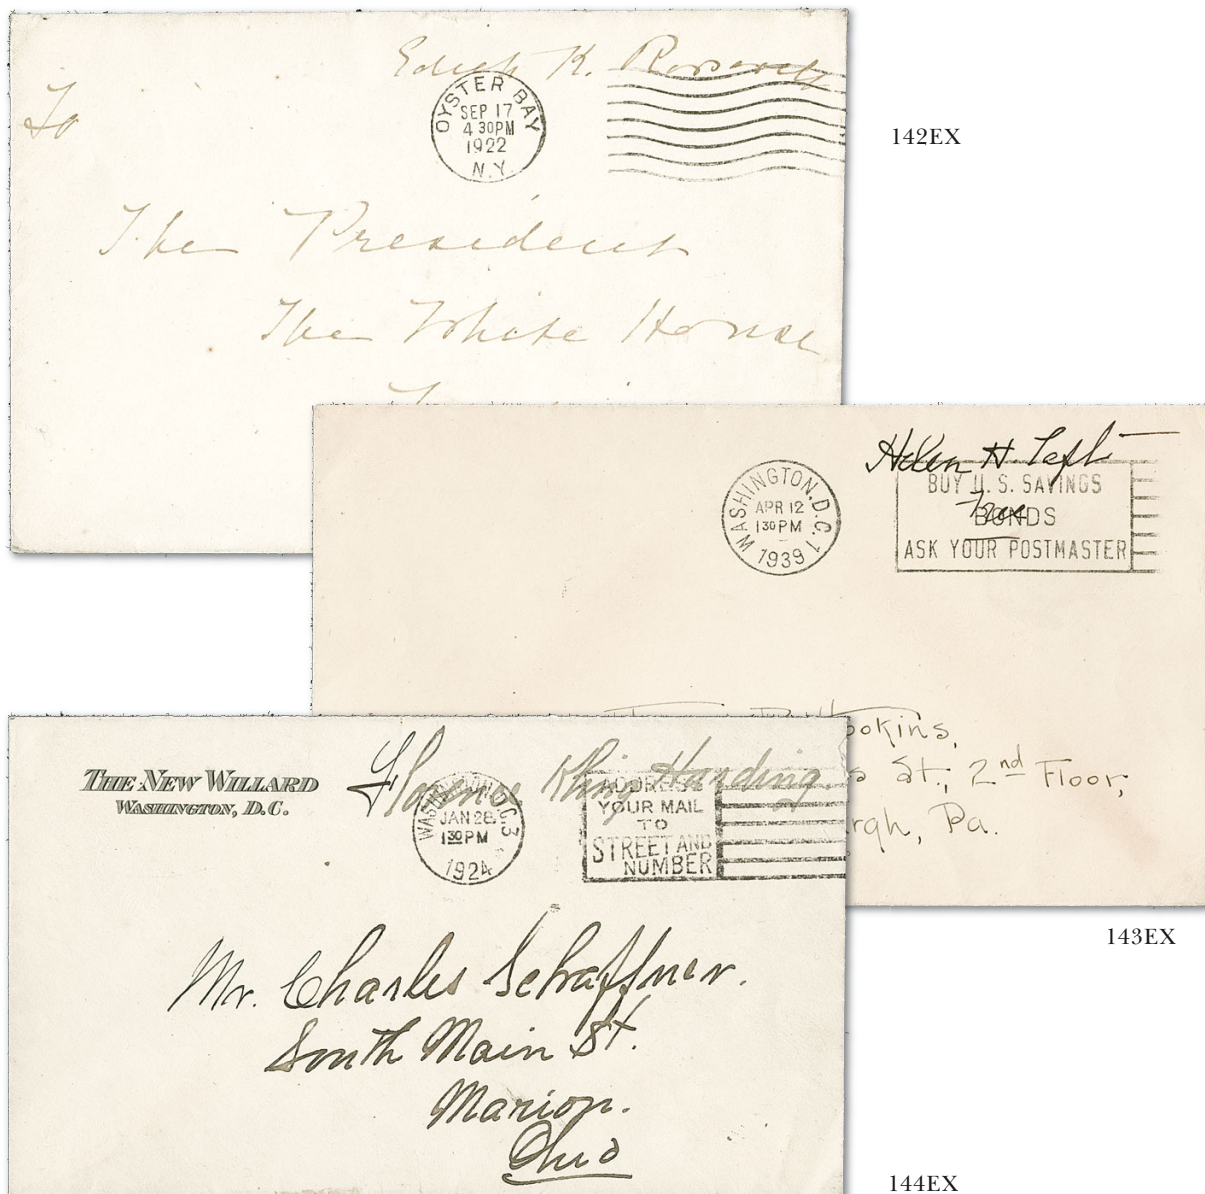 Edith K. Roosevelt
To
OYSTER BAY
SEP 17
4 30PM
1922
N.Y.
The President
The White House
142EX
Helen H Taft
Free
WASHINGTON, D.C. 1
APR 12
1 30 PM
1939
BUY U.S. SAVINGS
BONDS
ASK YOUR POSTMASTER
okins,
s St., 2nd Floor,
rgh, Pa.
143EX
THE NEW WILLARD
WASHINGTON, D.C.
Florence Kling Harding
WASHINGTON, D.C. 3
JAN 28
1 30 PM
1924
ADDRESS
YOUR MAIL
TO
STREET AND
NUMBER
Mr. Charles Schaffner.
South Main St.
Marion.
Ohio
144EX